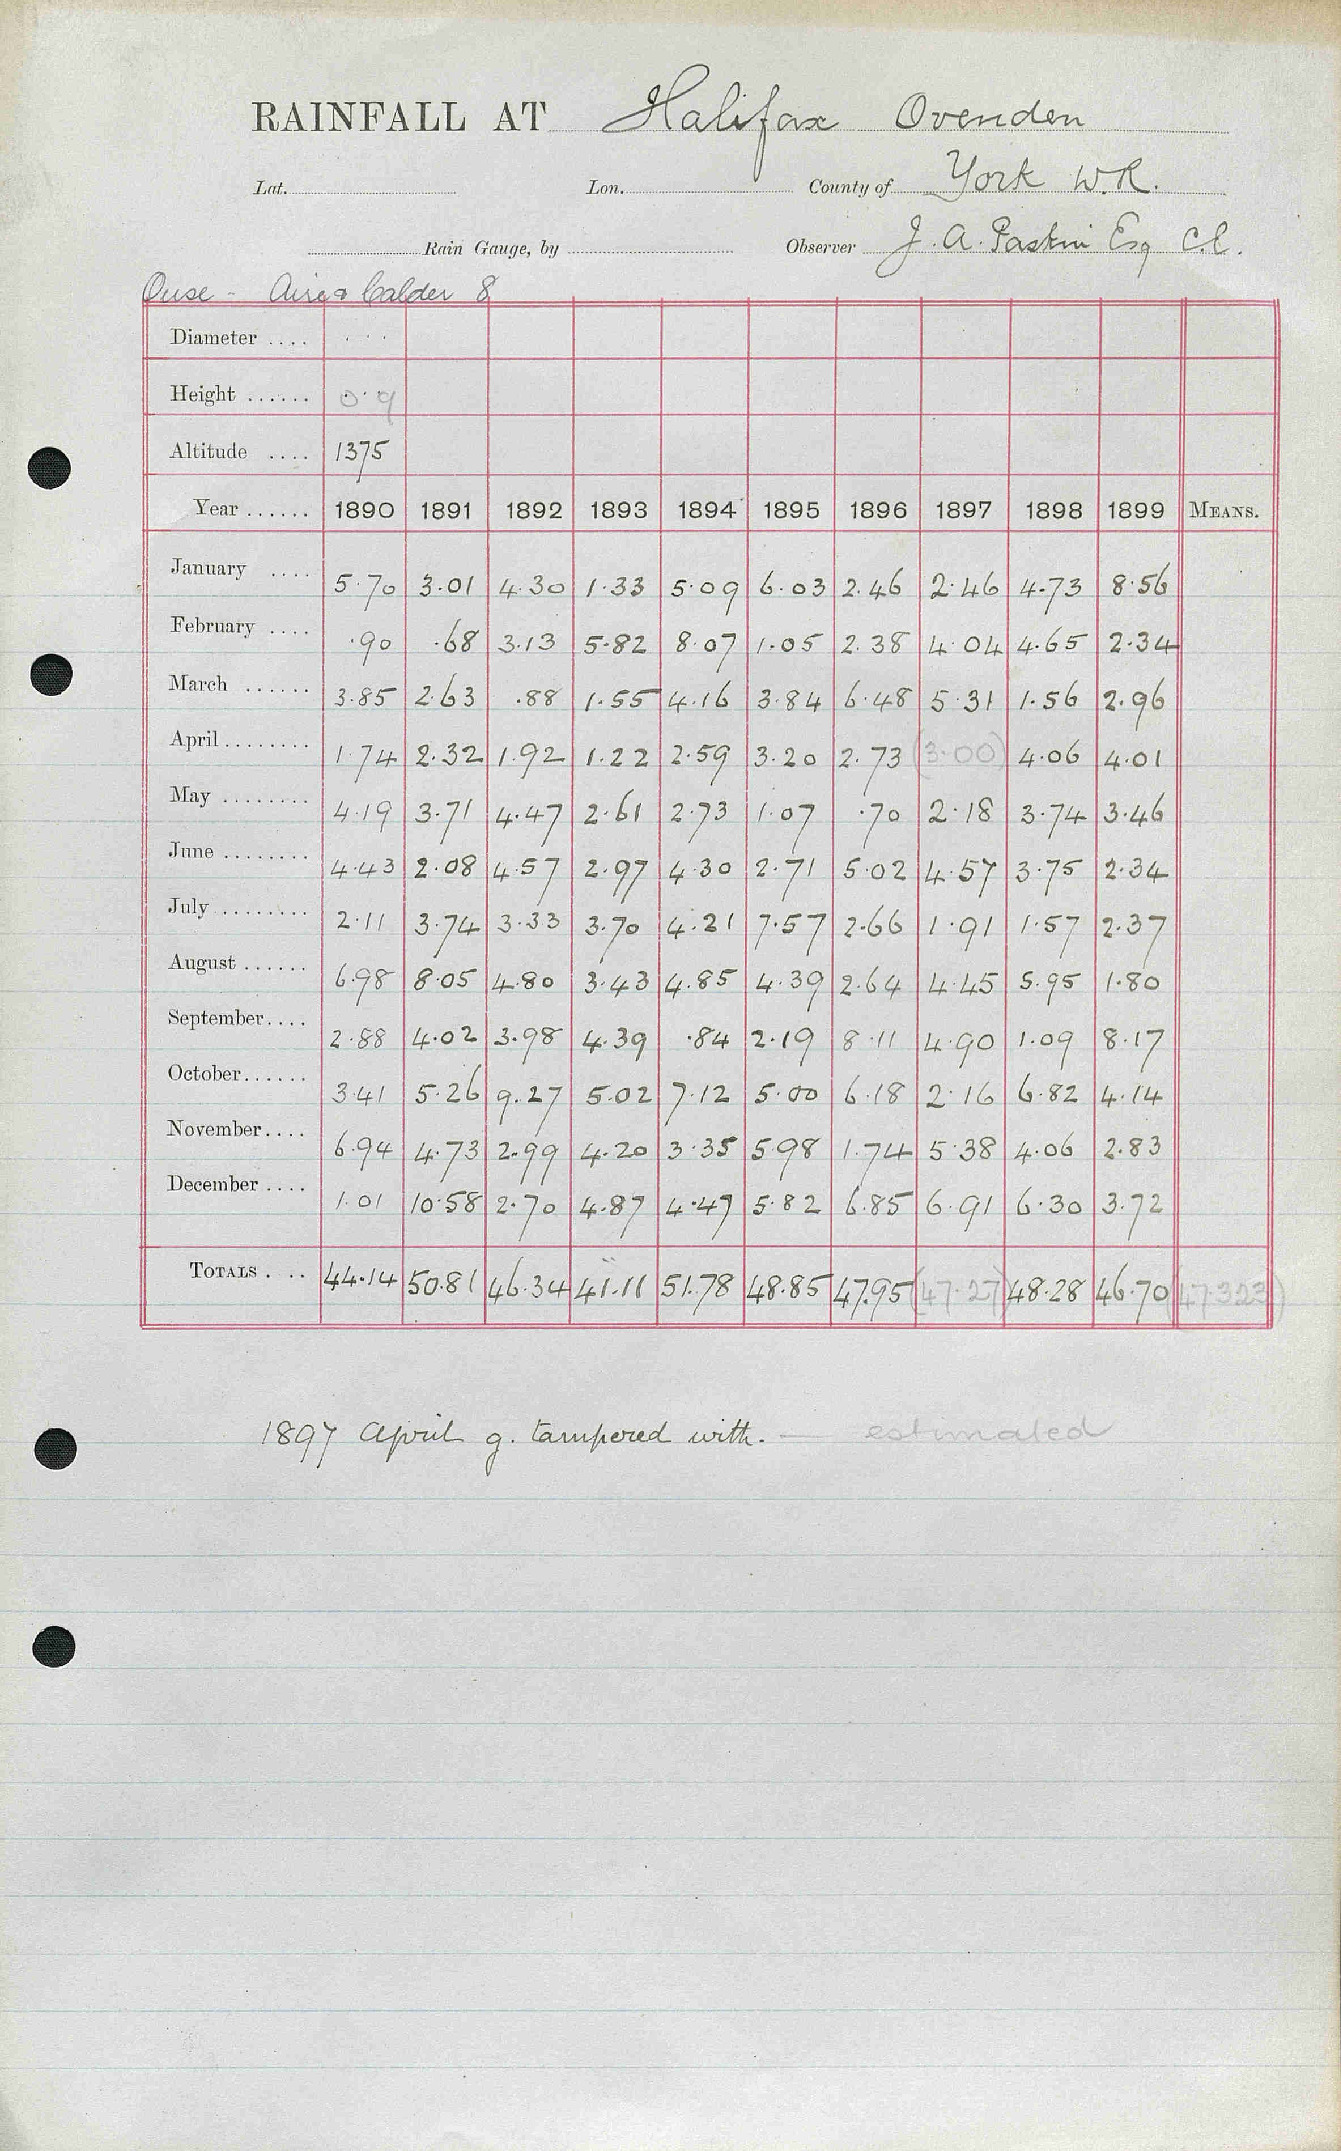 RAINFALL AT Halifax Ovenden
Lat. Lon. County of York W.R.
Rain Gauge, by Observer J. A. Paskin Esq C.E.
Ouse - Aire & Calder 8
Diameter ....
Height ...... 0.9
Altitude .... 1375
Year ...... 1890 1891 1892 1893 1894 1895 1896 1897 1898 1899 MEANS.
January .... 5.70 3.01 4.30 1.33 5.09 6.03 2.46 2.46 4.73 8.56
February .... .90 .68 3.13 5.82 8.07 1.05 2.38 4.04 4.65 2.34
March ...... 3.85 2.63 .88 1.55 4.16 3.84 6.48 5.31 1.56 2.96
April ........ 1.74 2.32 1.92 1.22 2.59 3.20 2.73 (3.00) 4.06 4.01
May ........ 4.19 3.71 4.47 2.61 2.73 1.07 .70 2.18 3.74 3.46
June ........ 4.43 2.08 4.57 2.97 4.30 2.71 5.02 4.57 3.75 2.34
July ........ 2.11 3.74 3.33 3.70 4.21 7.57 2.66 1.91 1.57 2.37
August ...... 6.98 8.05 4.80 3.43 4.85 4.39 2.64 4.45 5.95 1.80
September.... 2.88 4.02 3.98 4.39 .84 2.19 8.11 4.90 1.09 8.17
October...... 3.41 5.26 9.27 5.02 7.12 5.00 6.18 2.16 6.82 4.14
November.... 6.94 4.73 2.99 4.20 3.35 5.98 1.74 5.38 4.06 2.83
December .... 1.01 10.58 2.70 4.87 4.47 5.82 6.85 6.91 6.30 3.72
TOTALS . .. 44.14 50.81 46.34 41.11 51.78 48.85 47.95 (47.27) 48.28 46.70 (47.323)
1897 April g. tampered with. — estimated